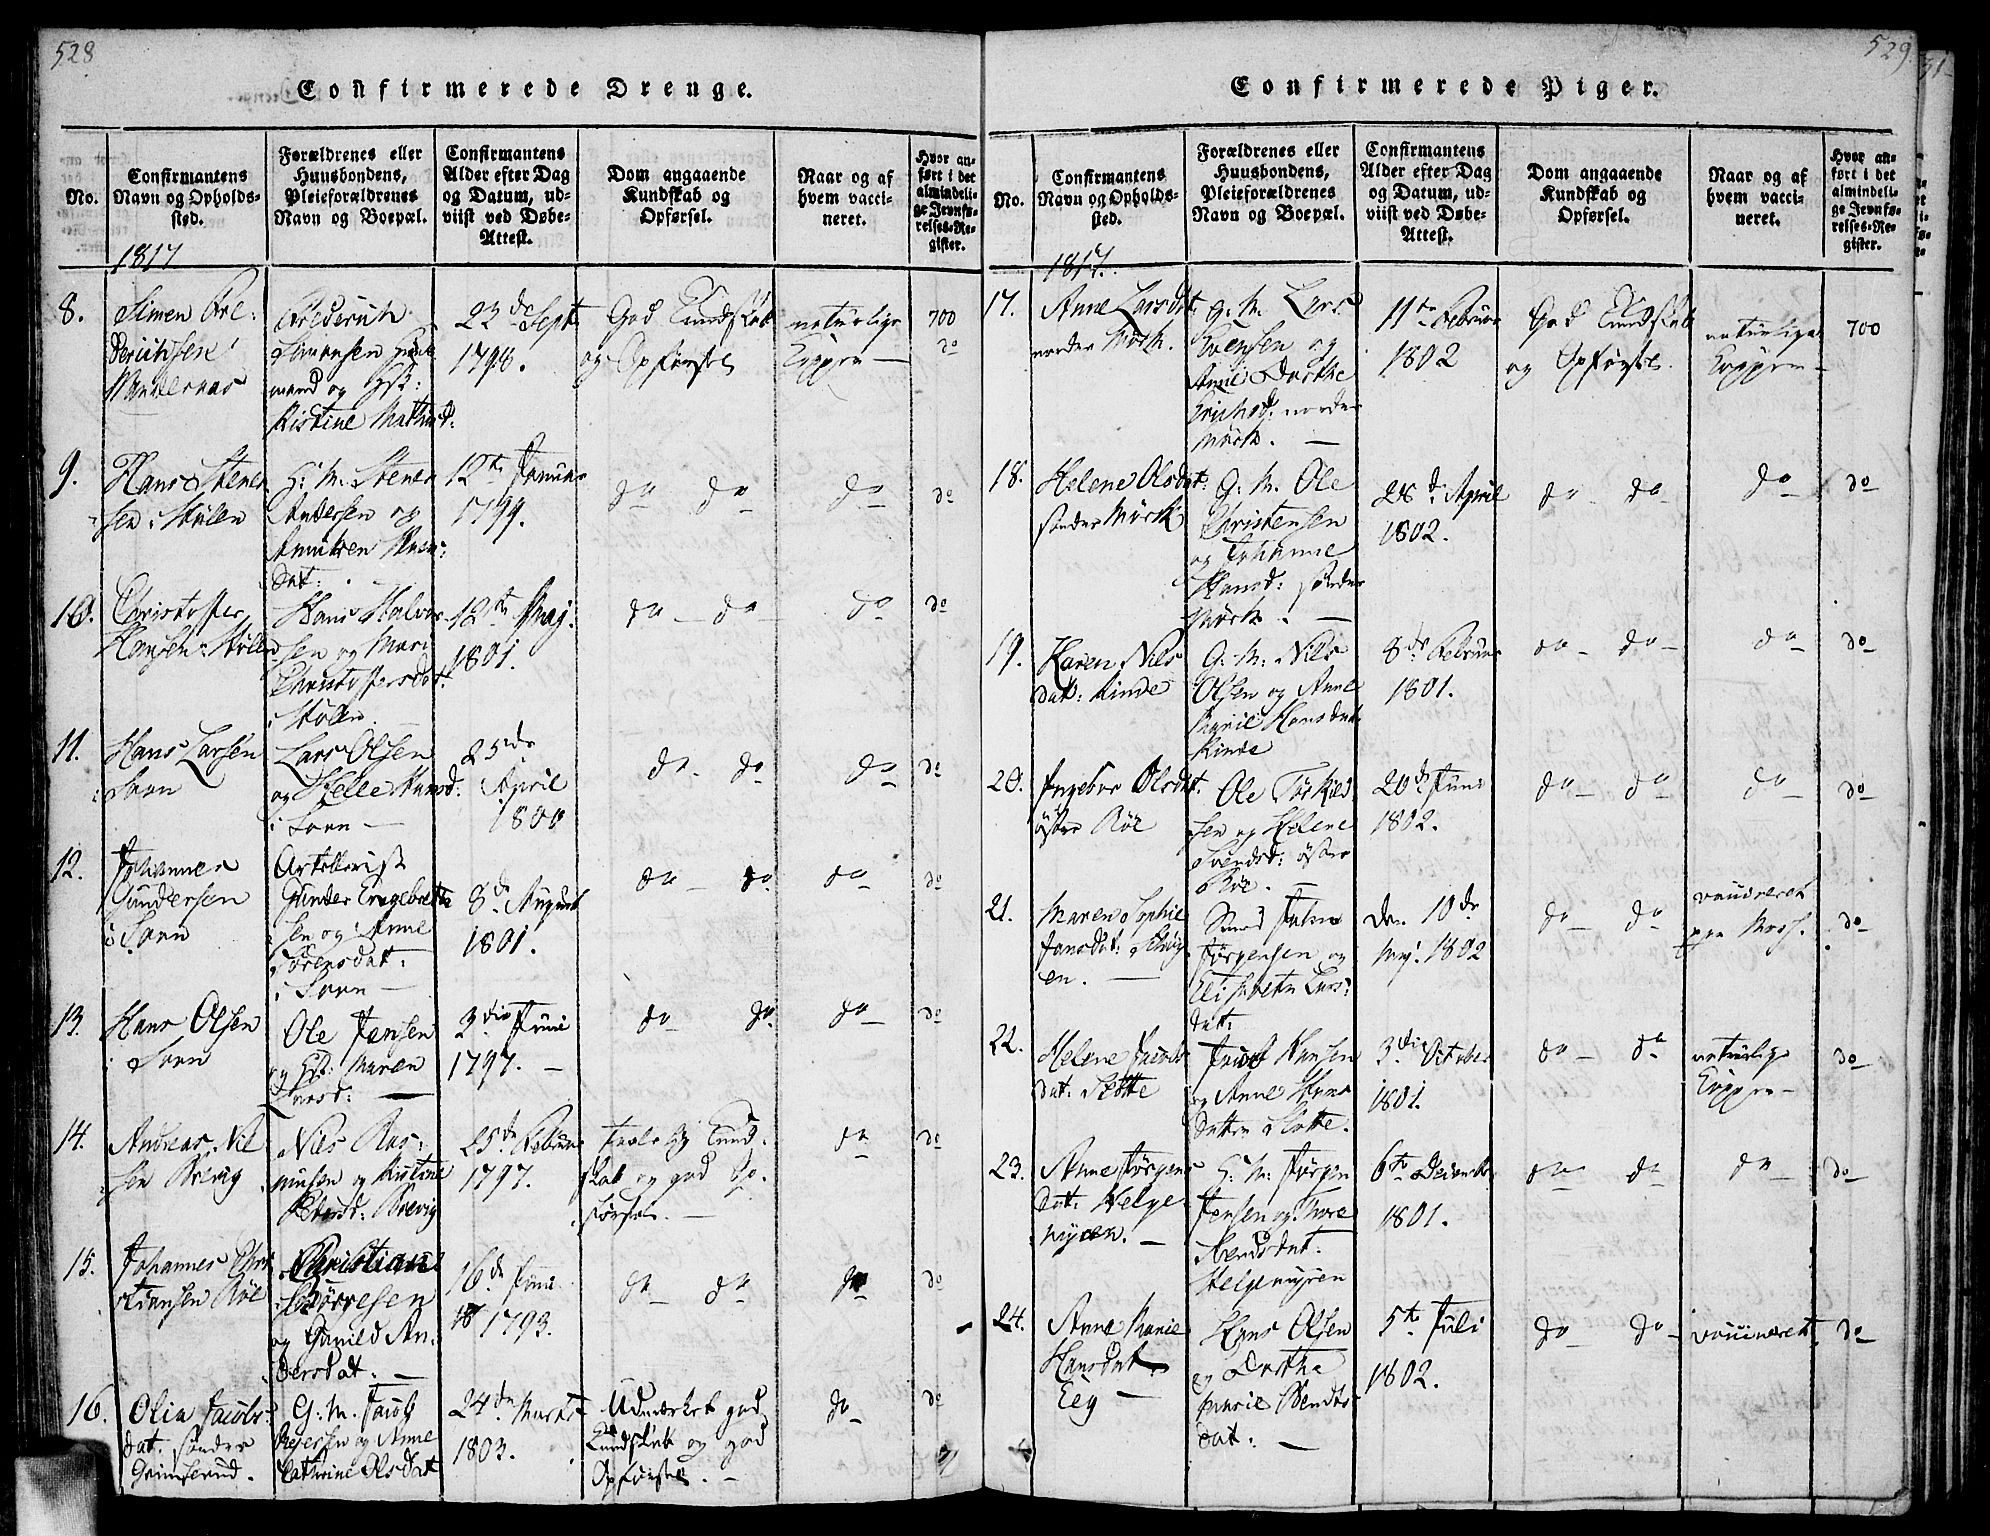 528
Confirmerede Drenge.
No.
Confirmantens
Navn og Opholds-
sted.
Forældrenes eller
Huusbondens,
Pleieforældrenes
Navn og Boepæl.
Confirmantens
Alder efter Dag
og Datum, ud-
viist ved Døbe-
Attest.
Dom angaaende
Kundskab og
Opførsel.
Naar og af
hvem vacci-
neret.
Hvor an-
ført i det
almindeli-
ge Jevnfø-
relses-Re-
gister.
1817
8.
Simen Fre-
derichsen
Frederich
Simonsen
mand og
Kistine
23de Sept
1798.
God Kundskab
og Opførsel
naturlige
Kopper
700
do
9.
Hans Stener
sen Stølen
G: M. Stener
Andersen og
dat:
12te Januar
1799.
do do
do
do
10.
Christoffer
Hansen Stølen
Hans Halvor
sen og Mari
Christoffersdat:
Stølen
12te Maj
1801.
do do
do
do
11.
Hans Larsen
Soon
Lars Olsen
og Helle
i Soon
25de
April
1800
do do
do
do
12.
Johannes
Gundersen
i Soon
Gunder Engebret
sen og Anne
Sørensdat:
i Soon
8de August
1801.
do do
do
do
13.
Hans Olsen
i Soon
Ole Jensen
og Maren
3die Juni
1797.
do do
do
do
14.
Andreas Nil
sen Brevig
Nils Ras-
musen og Kistine
Brevig
25de Februar
1797.
Kund-
skab og god Op-
førsel.
do
do
15.
Johannes Chri
stiansen Röe
Christian
og Gunild An-
dersdat:
16de Juni
1793.
do do
do
do
16.
Olia Jacobs-
dat: sönder
Grimserud.
G: M. Jacob
og Anne
Cathrine Olsdat
24de Marts
1803.
Udmærket god
Kundskab og god
Opførsel.
do
do
529
Confirmerede Piger.
No.
Confirmantens
Navn og Opholds-
sted.
Forældrenes eller
Huusbondens,
Pleieforældrenes
Navn og Boepæl.
Confirmantens
Alder efter Dag
og Datum, ud-
viist ved Døbe-
Attest.
Dom angaaende
Kundskab og
Opførsel.
Naar og af
hvem vacci-
neret.
Hvor an-
ført i det
almindeli-
ge Jevnfø-
relses-Re-
gister.
1817.
17.
Anne Larsdat:
nordre Mörk.
G: M. Lars
Svensen og
Anne Dorthe
nordre
Mörk.
11te Februar
1802
God Kundskab
og Opførsel.
naturlige
Kopper
700
18.
Helene Olsdat:
søndre Mörk
G: M. Ole
Christensen
og Johanne
Hansd: søndre
Mörk.
28de April
1802.
do do
do
do
19.
Karen Nils
dat: Kinde
G: M: Nils
Olsen og Anne
Marie Hansdat
Kinde
8de Februar
1801.
do do
do
do
20.
Ingebor Olsdat:
östre Röe
Ole Torkild
sen og Helene
Svendsd: östre
Röe.
20de Juni
1802.
do do
do
do
21.
Maren Sophie
Jansdat:
en.
Smed
Jörgensen og
Elisabeth Lars-
dat:
den 10de
Maj 1802
do do
vaccineret
Moss.
do
22.
Helene Jacobs
dat: Slotte
Jacob Hansen
og Anne Hans
datter Slotte.
3die October
1801.
do do
naturlige
Kopper
do
23.
Anne Jörgens
dat: Helge
myren.
G: M: Jörgen
Jensen og Thore
Svendsdat:
Helgemyren
6te December
1801.
do do
do
do
24.
Anne Marie
Hansdat
Eeg
Hans Olsen
og Dorthe
Marie Bendts
dat:
5te Juli
1802.
do do
vaccineret
do